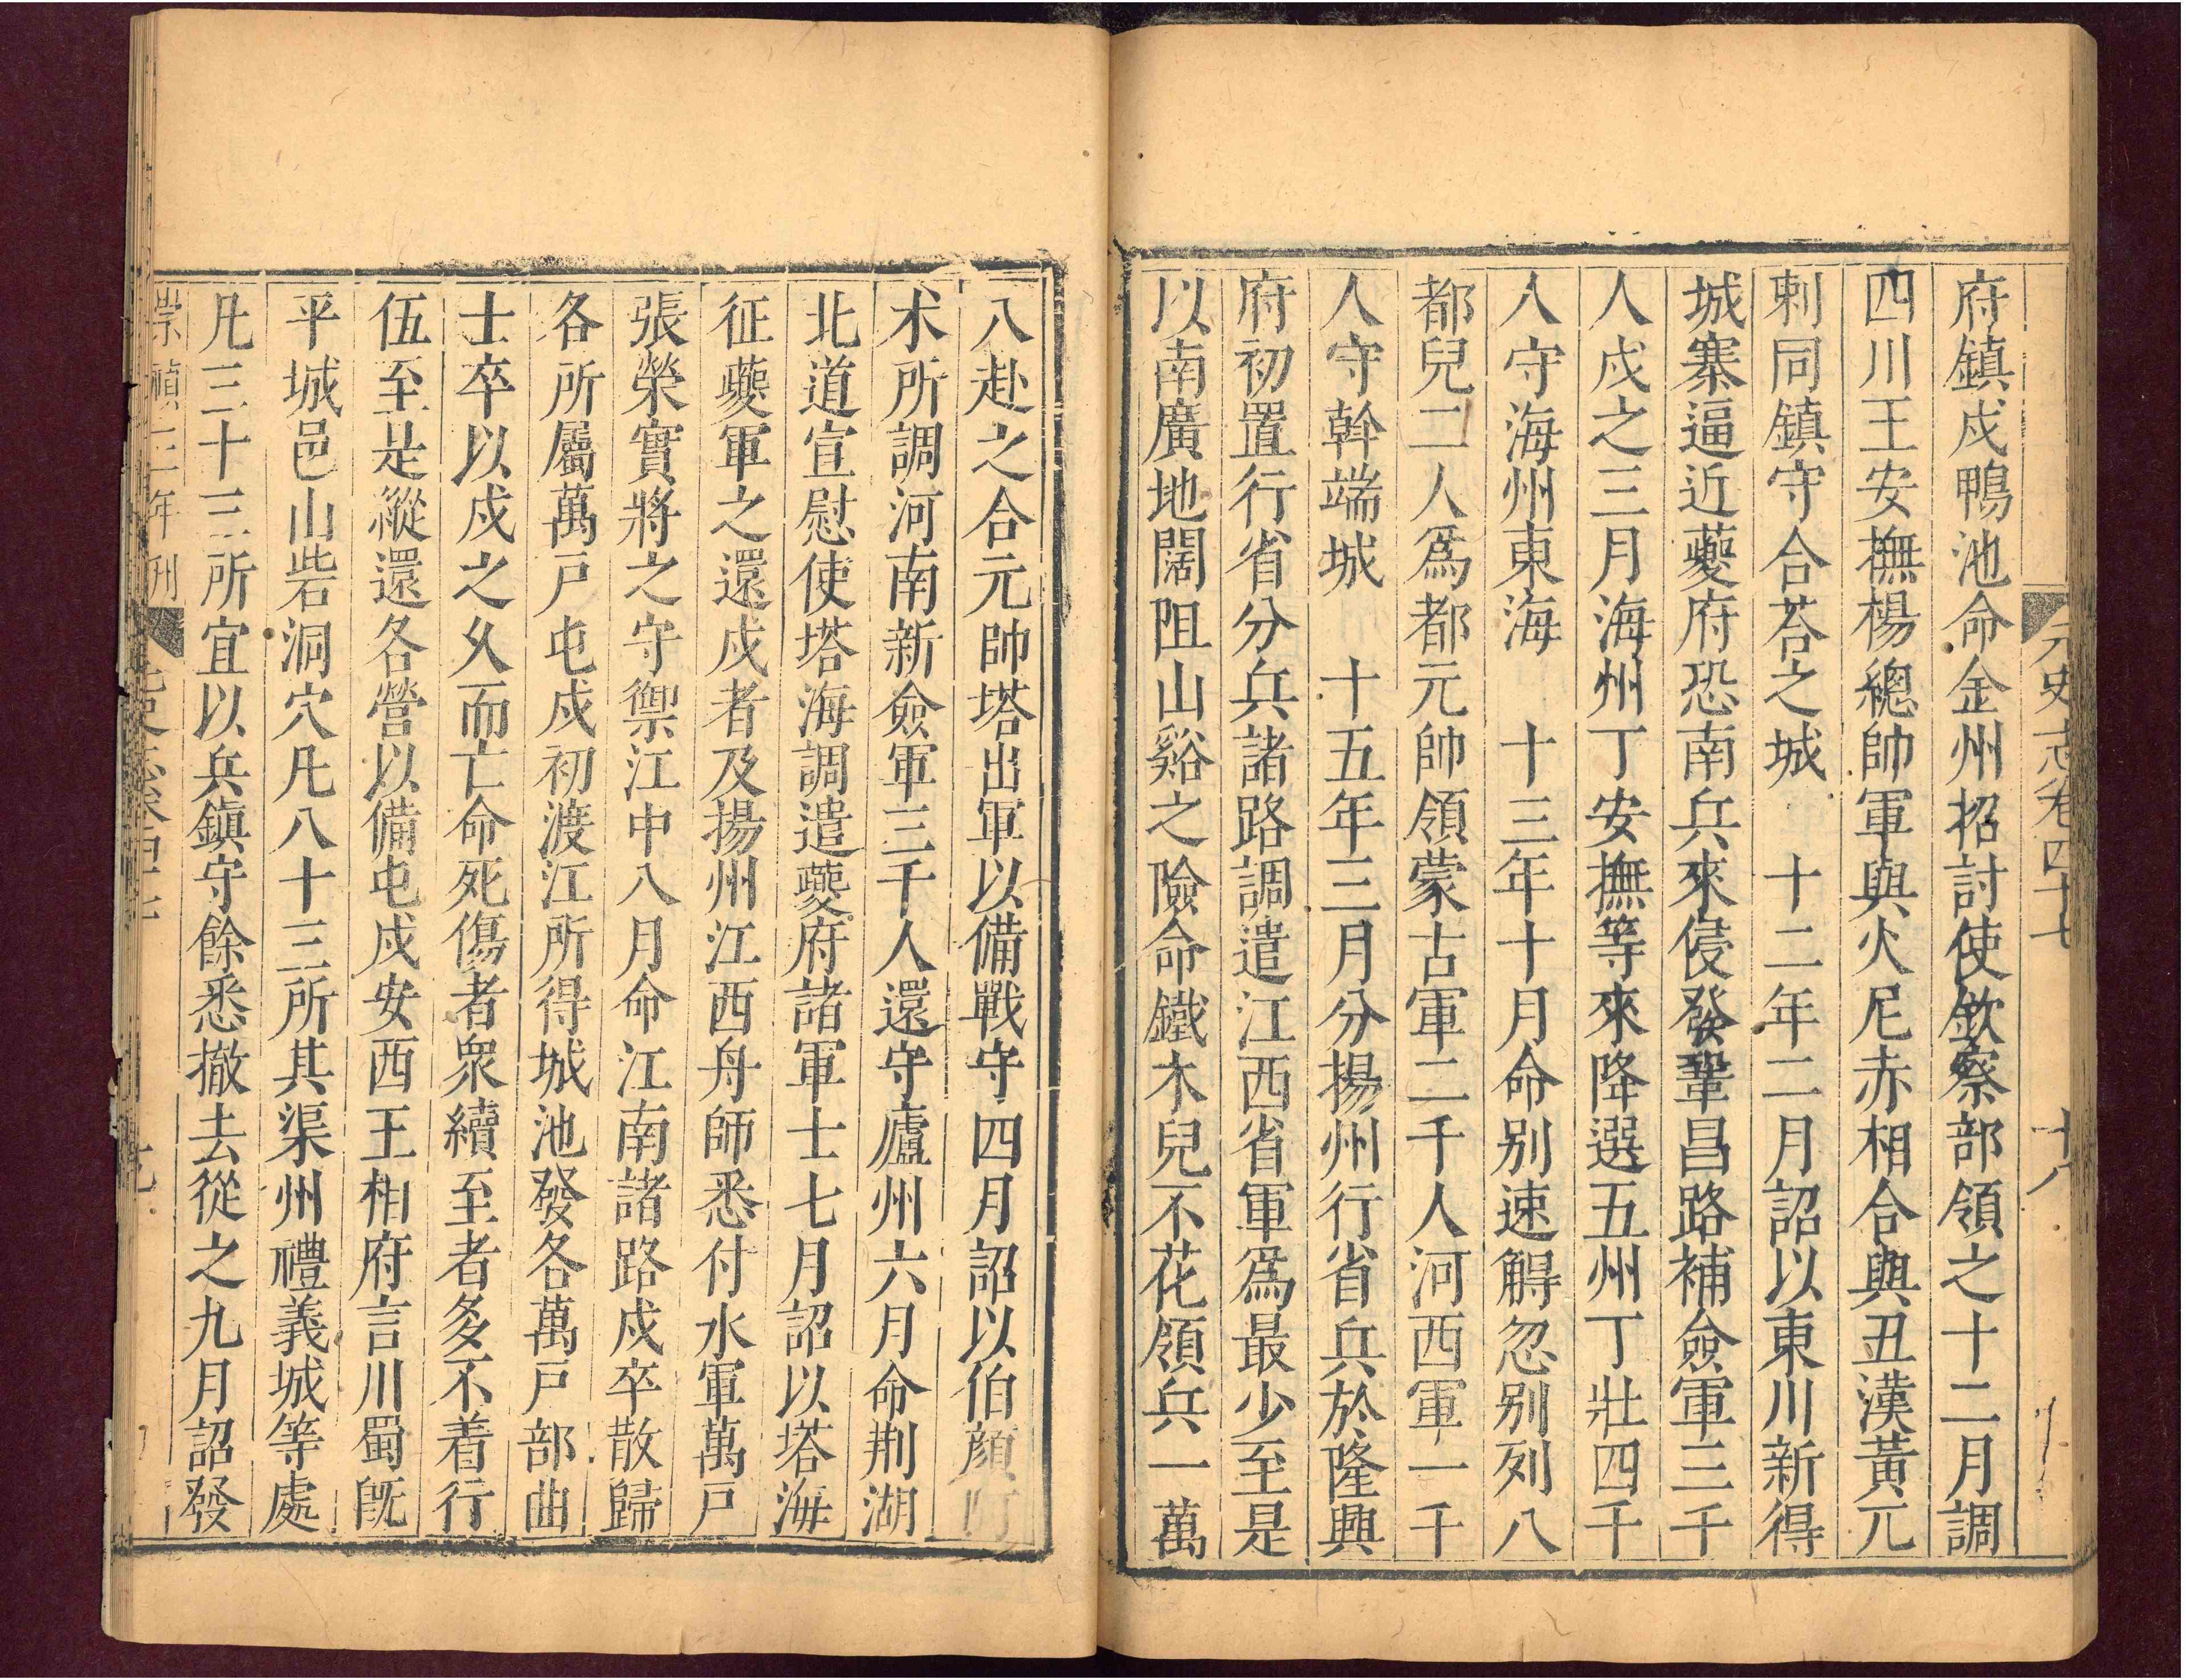 元史志卷四十七 十八
府鎮戍鴨池命金州招討使欽察部領之十二月調
四川王安撫楊總帥軍與火尼赤相合與丑漢黃兀
剌同鎮守合荅之城 十二年二月詔以東川新得
城寨逼近夔府恐南兵來侵發鞏昌路補僉軍三千
人戍之三月海州丁安撫等來降選五州丁壯四千
人守海州東海 十三年十月命别速䚟忽别列八
都兒二人爲都元帥領蒙古軍二千人河西軍一千
人守斡端城 十五年三月分揚州行省兵於隆興
府初置行省分兵諸路調遣江西省軍爲最少至是
以南廣地闊阻山谿之險命鐵木兒不花領兵一萬
八赴之合元帥塔出軍以備戰守四月詔以伯顔
术所調河南新僉軍三千人還守廬州六月命荆湖
北道宣慰使塔海調遣夔府諸軍士七月詔以塔海
征夔軍之還戍者及揚州江西舟師悉付水軍萬戶
張榮實將之守禦江中八月命江南諸路戍卒散歸
各所屬萬戶屯戍初渡江所得城池發各萬戶部曲
士卒以戍之乆而亡命死傷者衆續至者多不着行
伍至是縱還各營以備屯戍安西王相府言川蜀旣
平城邑山砦洞穴凡八十三所其渠州禮義城等處
凡三十三所宜以兵鎮守餘悉撤去從之九月詔發
崇禎三年刊